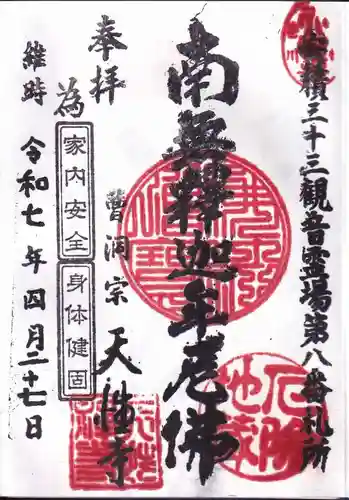 安積三十三観音霊場第八番札所
南無釋迦牟尼佛
奉拝
曹洞宗 天性寺
為
家内安全
身体健固
維時 令和七年四月二十七日